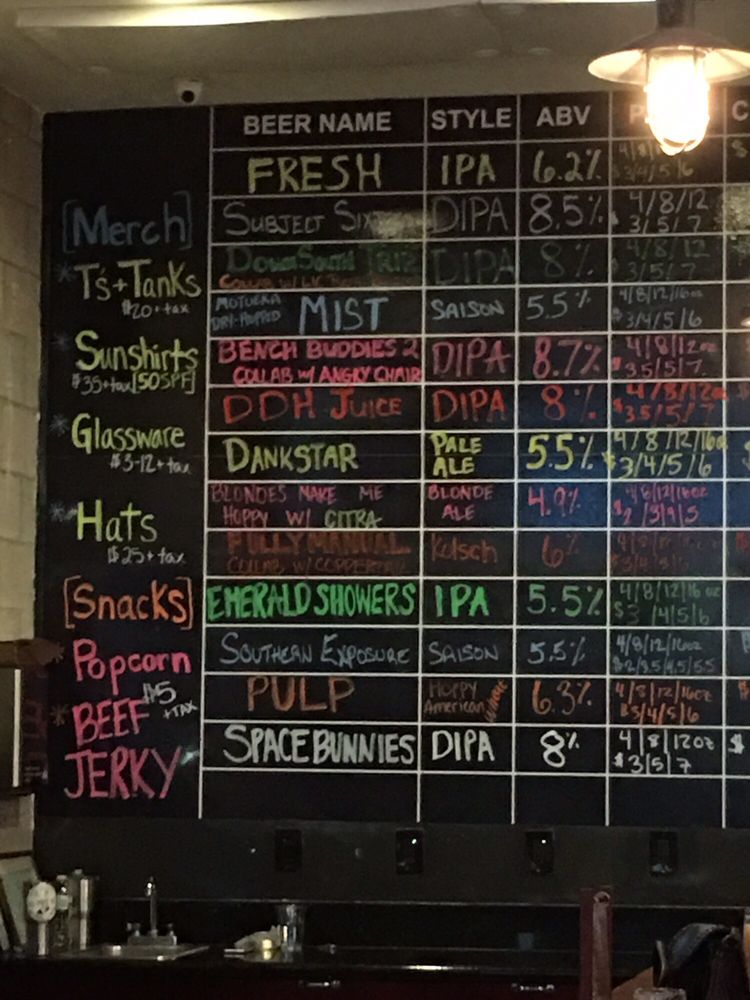 BEER NAME STYLE ABV
FRESH IPA 6.2%
[Merch]
SUBJECT DIPA 8.5% 4/8/12
3/5/7
DOWN SOUTH DIPA 8% 4/8/12
3/5/7
T's+TANKS
$20+tax
MOTUEKA
DRY-HOPPED MIST SAISON 5.5% 4/8/12/16oz
$3/4/5/6
Sunshirts
$35+tax [50SPF]
BENCH BUDDIES 2 DIPA 8.7% 4/8/12oz
COLLAB W/ ANGRY CHAIR $3.5/5/7
DDH JUICE DIPA 8% 4/8/12oz
$3.5/5/7
Glassware
$3-12+tax
DANKSTAR PALE
ALE 5.5% 4/8/12/16oz
$3/4/5/6
BLONDES MAKE ME
HOPPY W/ CITRA BLONDE
ALE 4.9% 4/8/12/16oz
Hats
$25+tax
FULLY MANUAL Kolsch 6%
COLLAB W/
[Snacks]
EMERALD SHOWERS IPA 5.5% 4/8/12/16oz
$3/4/5/6
Popcorn
SOUTHERN EXPOSURE SAISON 5.5% 4/8/12/16oz
$2/3.5/4.5/5.5
BEEF
JERKY
$5
+TAX
PULP HOPPY
American 6.3% 4/8/12/16oz
$3/4/5/6
SPACE BUNNIES DIPA 8% 4/8/12oz
$3/5/7